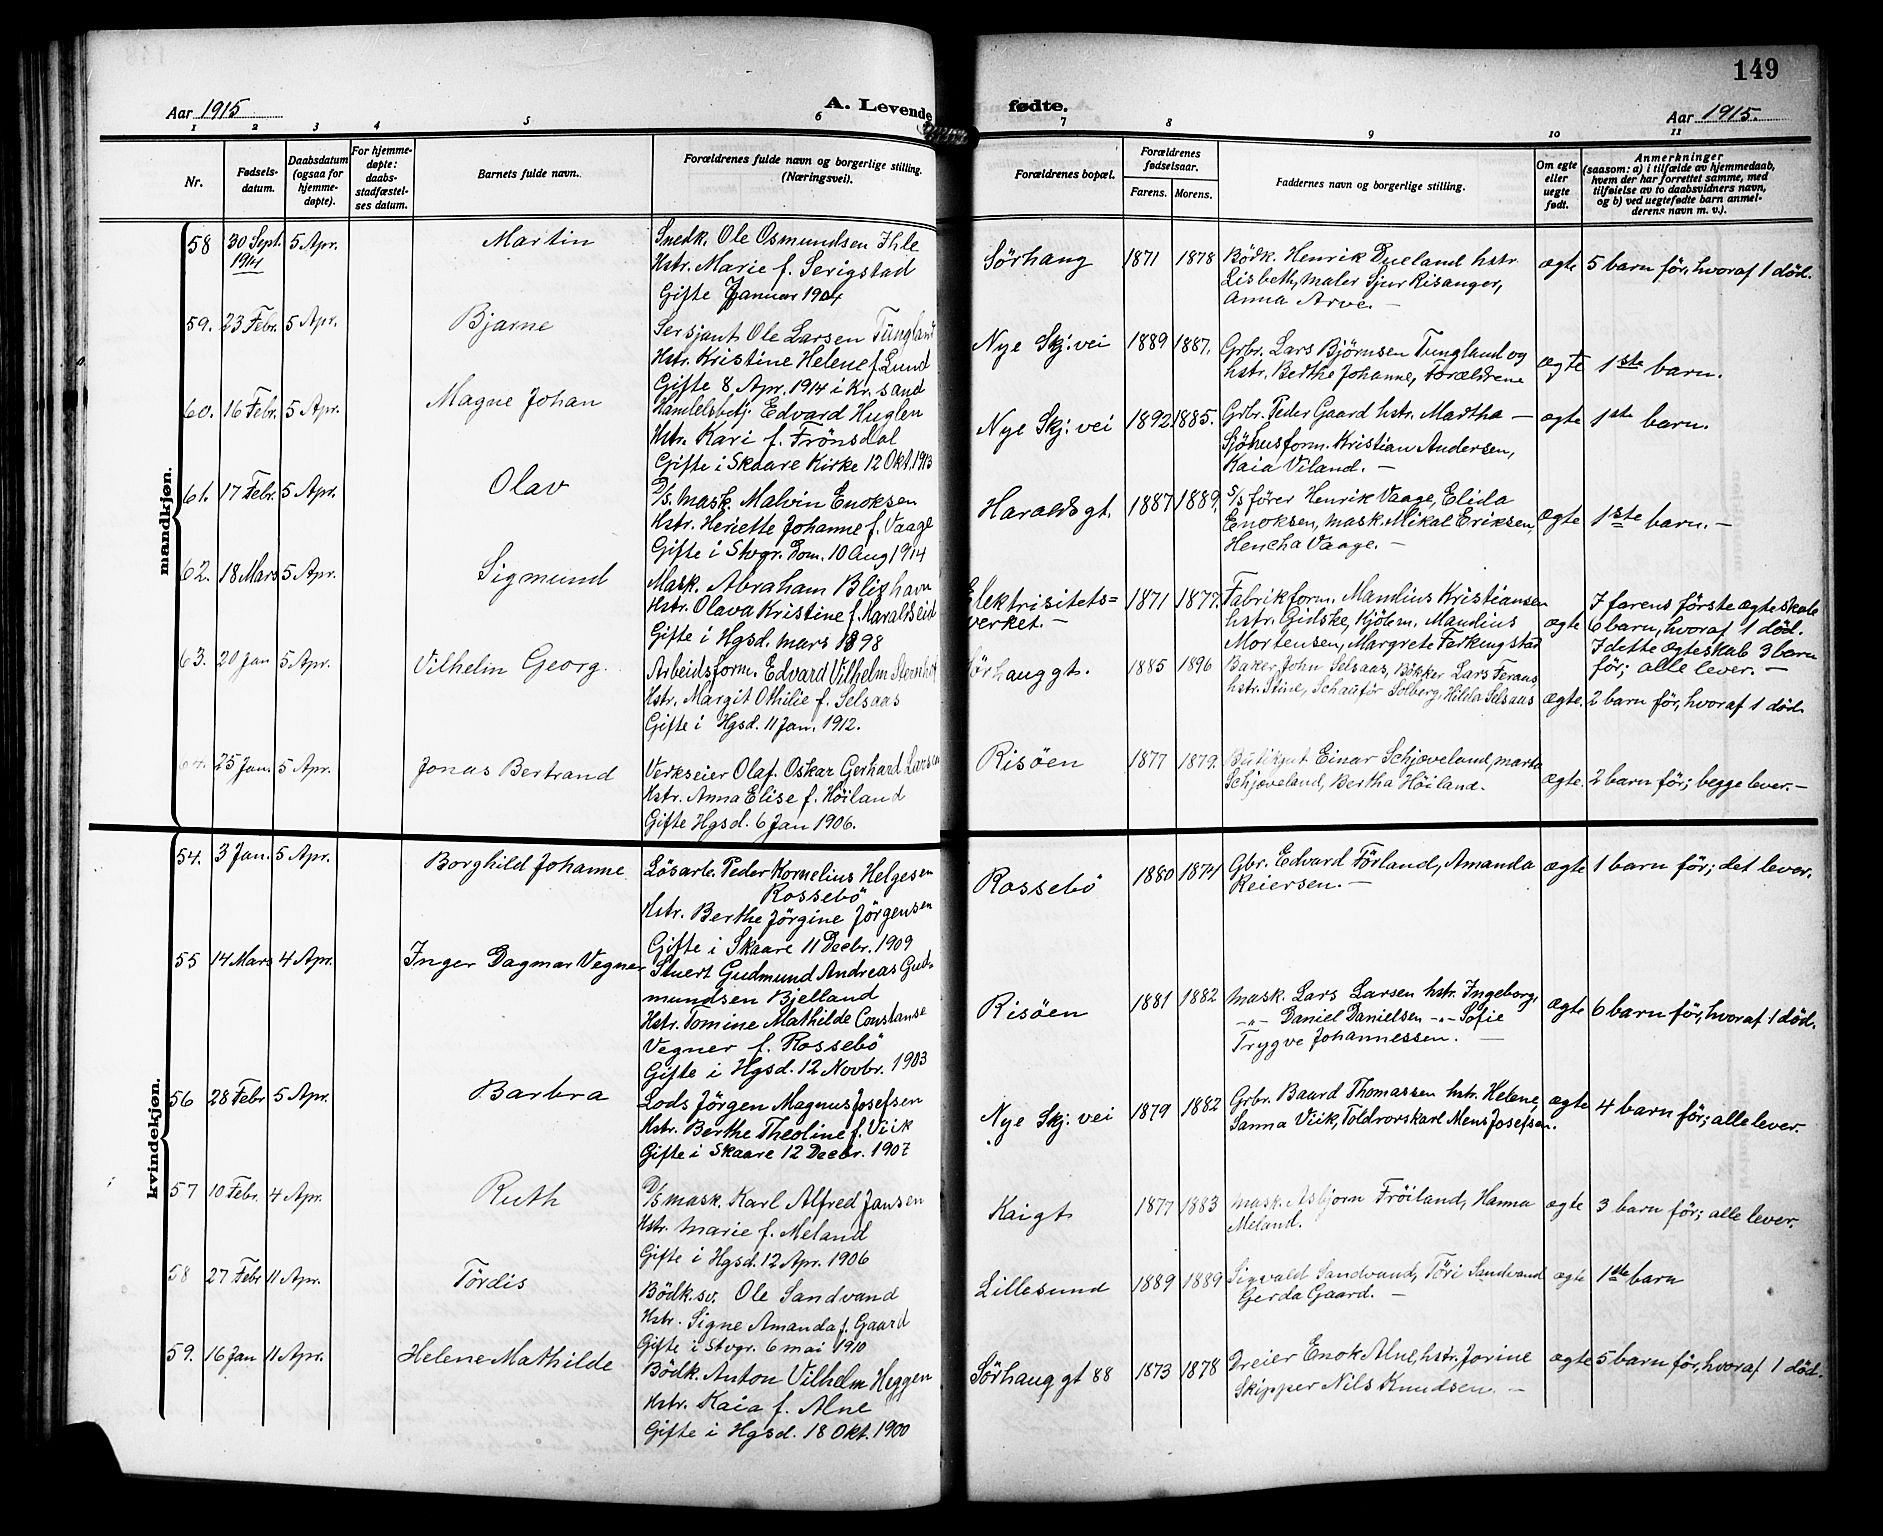 149
Aar 1915
A. Levende fødte.
Aar 1915.
1 2 3 4 5 6 7 8 9 10 11
Nr.
Fødsels-
datum.
Daabsdatum
(ogsaa for
hjemme-
døpte).
For hjemme-
døpte:
daabs-
stadfæstel-
ses datum.
Barnets fulde navn.
Forældrenes fulde navn og borgerlige stilling.
(Næringsvei).
Forældrenes bopæl.
Forældrenes
fødselsaar.
Farens. Morens.
Faddernes navn og borgerlige stilling.
Om egte
eller
uegte
født.
Anmerkninger
(saasom: a) i tilfælde av hjemmedaab,
hvem der har forrettet samme, med
tilføielse av to daabsvidners navn,
og b) ved uegtefødte barn anmel-
derens navn m. v.).
mandkjøn.
58 30 Sept. 1914 5 Apr. Martin
Snedk. Ole Osmundsen Ihle
Hstr. Marie f. Serigstad
Gifte Januar 1904
Sörhaug 1871 1878
Bödk. Henrik Dueland hstr
Lisbeth, maler Sjur Risanger,
Anna Arve. —
ægte 5 barn för, hvoraf 1 död.
59. 23 Febr. 5 Apr. Bjarne
Sersjant Ole Larsen Tungland
Hstr. Kristine Helene f. Lund
Gifte 8 Apr. 1914 i Kr. sand
Nye Skj. vei 1889 1887.
Grbr. Lars Bjørnsen Tungland og
hstr. Berthe Johanne, Forældrene
ægte 1ste barn.
60. 16 Febr. 5 Apr. Magne Johan
Handelsbetj. Edvard Huglen
Hstr. Kari f. Frönsdal
Gifte i Skaare Kirke 12 Okt. 1913
Nye Skj. vei 1892 1885.
Grbr. Peder Gaard hstr. Martha —
Sjöhusform. Kristian Andersen,
Kaia Viland. —
ægte 1ste barn.
61. 17 Febr. 5 Apr. Olav
D/s. mask. Malvin Enoksen
Hstr. Heriette Johanne f. Vaage
Gifte i Stvgr. Dom. 10 Aug 1914
Haralds gt. 1887 1889.
S/s fører Henrik Vaage, Elida
Enoksen, mask. Mikal Eriksen,
Hencha Vaage. —
ægte 1ste barn. —
62. 18 Mars 5 Apr. Sigmund
Mask. Abraham Blikshavn
Hstr. Olava Kristine f. Haraldseid
Gifte i Hgsd. mars 1898
Elektrisitets=
verket. — 1871 1877.
Fabrikform. Mandius Kristiansen
hstr. Gidske, Kjölem. Mandius
Mortensen, Margrete Ferkingstad
ægte I farens förste ægteskab
6 barn, hvoraf 1 död.
I dette ægteskab 3 barn
för; alle lever. —
63. 20 Jan 5 Apr. Vilhelm Georg.
Arbeidsform. Edvard Vilhelm
Hstr. Margit Othilie f. Selsaas
Gifte i Hgsd. 11 Jan. 1912.
Sörhauggt. 1885 1896
Baker John Selsaas, Bökker Lars Feraas,
hstr. Stine, Schauför Solberg, Hilda Selsaas
ægte. 2 barn för, hvoraf 1 död.
64. 25 Jan. 5 Apr. Jonas Bertrand
Verkseier Olaf Oskar Gerhard Larsen
Hstr. Anna Elise f. Höiland
Gifte Hgsd. 6 Jan 1906.
Risöen 1877 1879.
Einar Schjæveland, Marta
Schjæveland, Bertha Höiland.
ægte. 2 barn för; begge lever. —
kvindekjøn.
54. 3 Jan. 5 Apr. Borghild Johanne
Lösarb. Peder Kornelius Helgesen
Rossebö
Hstr. Berthe Jörgine Jörgensen
Gifte i Skaare 11 Decbr. 1909
Rossebö 1880 1874
Gbr. Edvard Förland, Amanda
Reiersen. —
ægte 1 barn för; det lever.
55 14 Mars 4 Apr. Inger Dagmar Vegner
Stuert Gudmund Andreas Gud-
mundsen Bjelland
Hstr. Tomine Mathilde Constanse
Vegner f. Rossebö
Gifte i Hgsd. 12 Novbr. 1903
Risöen 1881 1882
Mask. Lars Larsen hstr. Ingeborg,
—„— Daniel Danielsen —„— Sofie
Trygve Johannessen. —
ægte 6 barn för, hvoraf 1 död.
56 28 Febr 5 Apr. Barbra
Lods Jörgen Magnus Josefsen
Hstr. Berthe Theoline f. Viik
Gifte i Skaare 12 Decbr. 1907
Nye Skj. vei 1879 1882
Grbr. Baard Thomassen hstr. Helene,
Sanna Viik, Toldrorskarl Mens Josefsen.
ægte 4 barn för; alle lever.
57 10 Febr. 4 Apr. Ruth
D/s mask. Karl Alfred Jansen
Hstr. Marie f. Meland
Gifte i Hgsd. 12 Apr. 1906
Kaigt 1877 1883
Mask. Asbjørn Fröiland, Hanna
Meland.
ægte 3 barn för; alle lever.
58 27 Febr 11 Apr. Tördis
Bödk. sv. Ole Sandvand
Hstr. Signe Amanda f. Gaard
Gifte i Stvgr. 6 mai 1910
Lillesund 1889 1889
Sigvald Sandvand, Töri Sandvand
Gerda Gaard. —
ægte 1ste barn
59. 16 Jan 11 Apr. Helene Mathilde
Bödk. Anton Vilhelm Heggen
Hstr. Kaia f. Alne
Gifte i Hgsd. 18 Okt. 1900
Sörhauggt 88 1873 1878
Dreier Enok Alne, hstr. Jorine
Skipper Nils Knudsen. —
ægte 5 barn för, hvoraf 1 död.